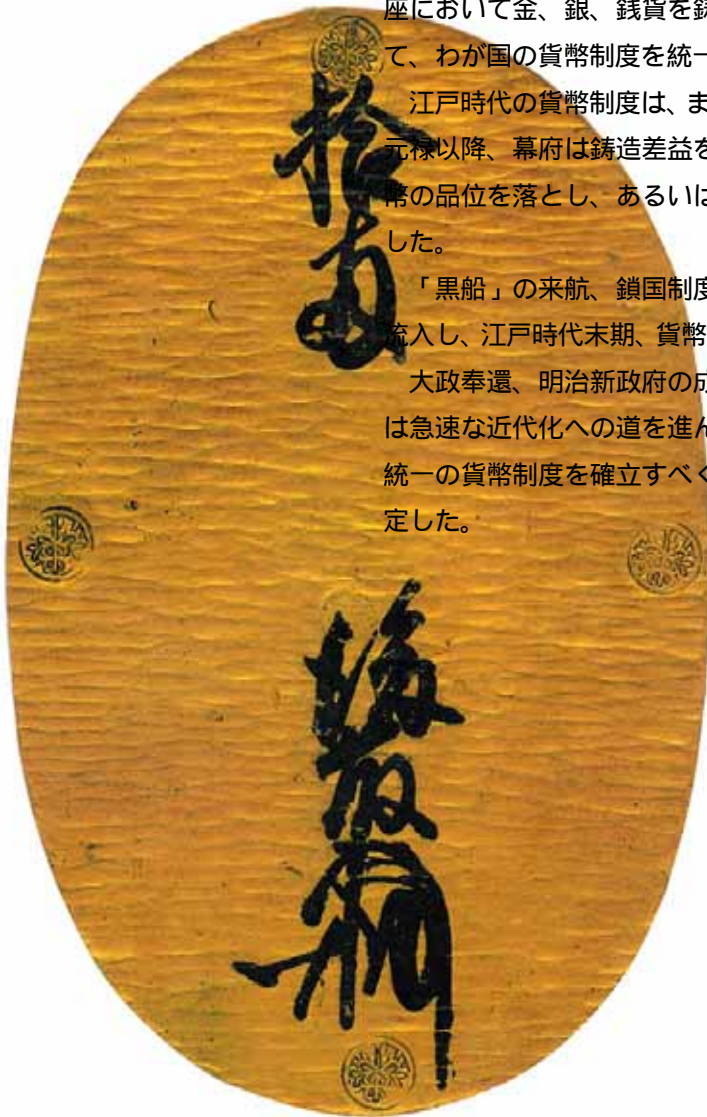 座において金、銀、銭貨を鋳
て、わが国の貨幣制度を統一
江戸時代の貨幣制度は、ま
元禄以降、幕府は鋳造差益を
幣の品位を落とし、あるいは
した。
「黒船」の来航、鎖国制度
流入し、江戸時代末期、貨幣
大政奉還、明治新政府の成
は急速な近代化への道を進ん
統一の貨幣制度を確立すべく
定した。
拾両